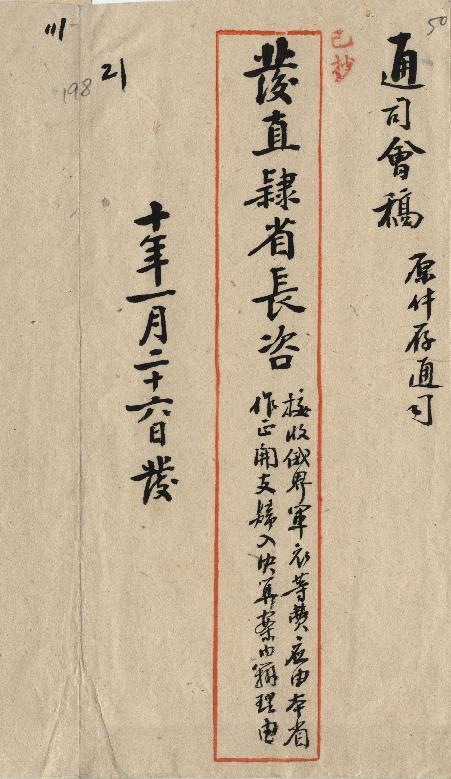 50
通司會稿
原件存通司
已抄
發直隸省長咨
接收俄界軍衣等費應由本省
作正開支歸入決算案內辦理由
十年一月二十六日發
198